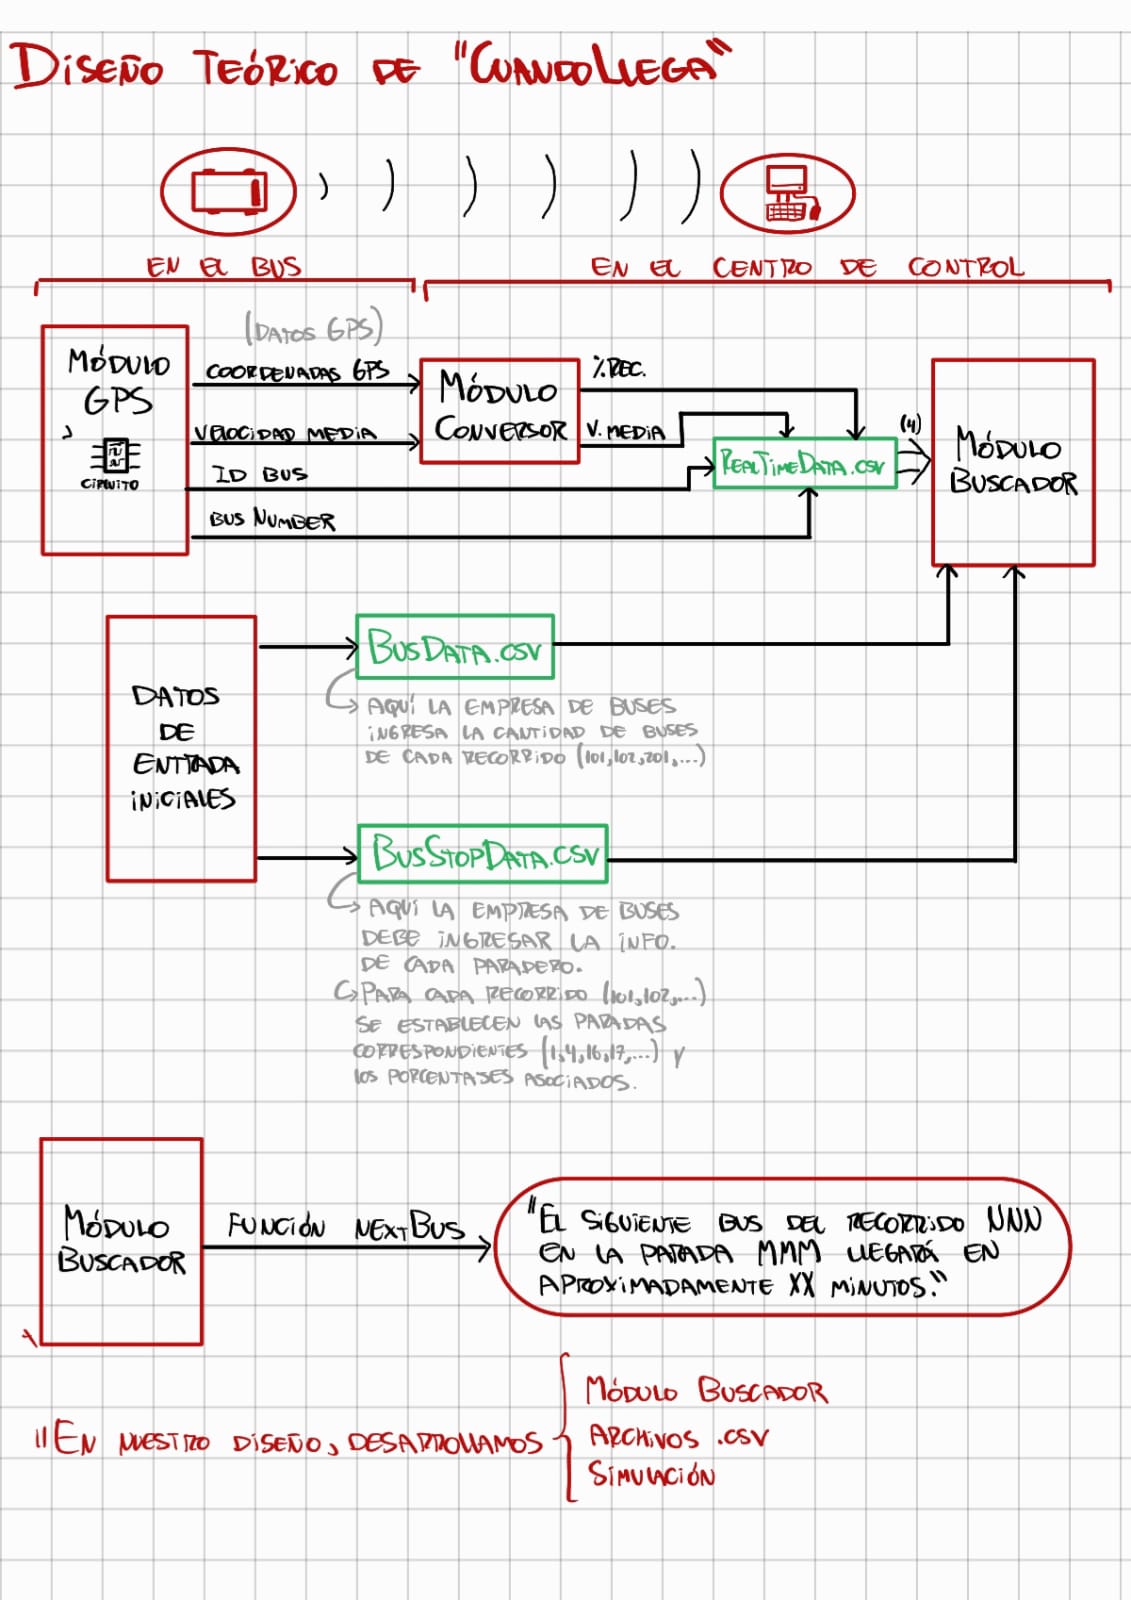 DISEÑO TEÓRICO DE "CUANDOLLEGA"
EN EL BUS
EN EL CENTRO DE CONTROL
(DATOS GPS)
MÓDULO
GPS
CIRCUITO
COORDENADAS GPS
VELOCIDAD MEDIA
ID BUS
BUS NUMBER
MÓDULO
CONVERSOR
%REC.
V. MEDIA
REALTIMEDATA.CSV
(4)
MÓDULO
BUSCADOR
DATOS
DE
ENTRADA
INICIALES
BUSDATA.CSV
AQUÍ LA EMPRESA DE BUSES
INGRESA LA CANTIDAD DE BUSES
DE CADA RECORRIDO (101,102,201,...)
BUSSTOPDATA.CSV
AQUÍ LA EMPRESA DE BUSES
DEBE INGRESAR LA INFO.
DE CADA PARADERO.
PARA CADA RECORRIDO (101,102,...)
SE ESTABLECEN LAS PARADAS
CORRESPONDIENTES (1,4,16,17,...) Y
LOS PORCENTASES ASOCIADOS.
MÓDULO
BUSCADOR
FUNCIÓN NEXTBUS
"EL SIGUIENTE BUS DEL RECORRIDO NNN
EN LA PARADA MMM LLEGARÁ EN
APROXIMADAMENTE XX MINUTOS."
"EN NUESTRO DISEÑO, DESARROLLAMOS
MÓDULO BUSCADOR
ARCHIVOS .CSV
SIMULACIÓN